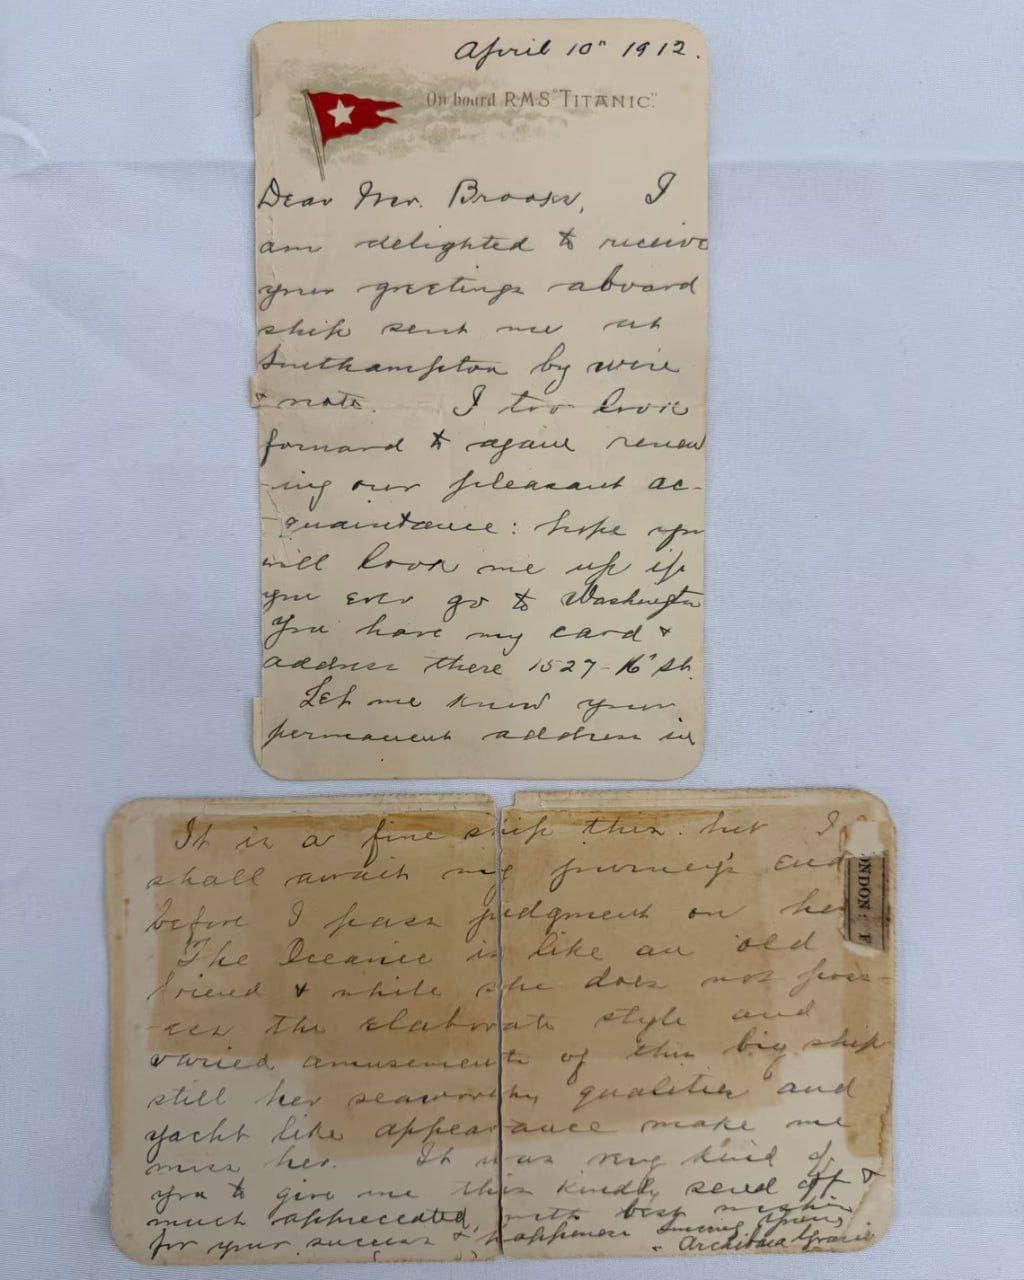 April 10" 1912.
On board RMS "TITANIC".
Dear Mr. Brooks, I
am delighted to receive
your greetings aboard
ship sent me at
Southampton by wire
& note. I too look
forward to again renew
-ing our pleasant ac-
-quaintance: hope you
will look me up if
you ever go to Washington
You have my card &
address there 1527-16" St.
Let me know your
permanent address in
It is a fine ship this but I
shall await my journey's end
before I pass judgment on her
The Oceanic is like an old
friend & while she does not poss-
-ess the elaborate style and
varied amusements of this big ship
still her seaworthy qualities and
yacht like appearance make me
miss her. It was very kind of
you to give me this kindly send off &
much appreciated, with best wishes
for your success & happiness Sincerely Yours
Archibald Gracie
ONDON: F